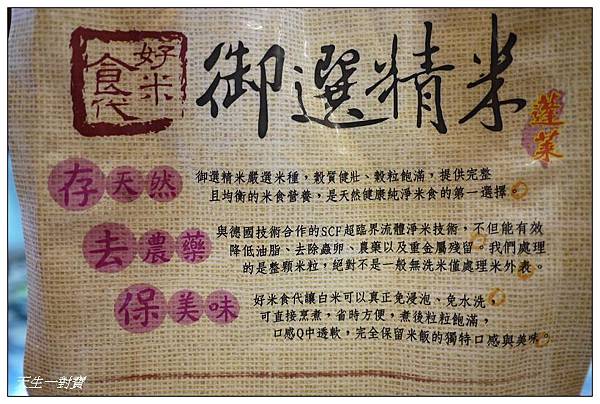 好米食代
御選精米
蓬萊
存天然
御選精米嚴選米種，穀質健壯、穀粒飽滿，提供完整
且均衡的米食營養，是天然健康純淨米食的第一選擇。
去農藥
與德國技術合作的SCF超臨界流體淨米技術，不但能有效
降低油脂、去除蟲卵、農藥以及重金屬殘留。我們處理
的是整顆米粒，絕對不是一般無洗米僅處理米外表。
保美味
好米食代讓白米可以真正免浸泡、免水洗，
可直接烹煮，省時方便，煮後粒粒飽滿，
口感Q中透軟，完全保留米飯的獨特口感與美味。
天生一對寶